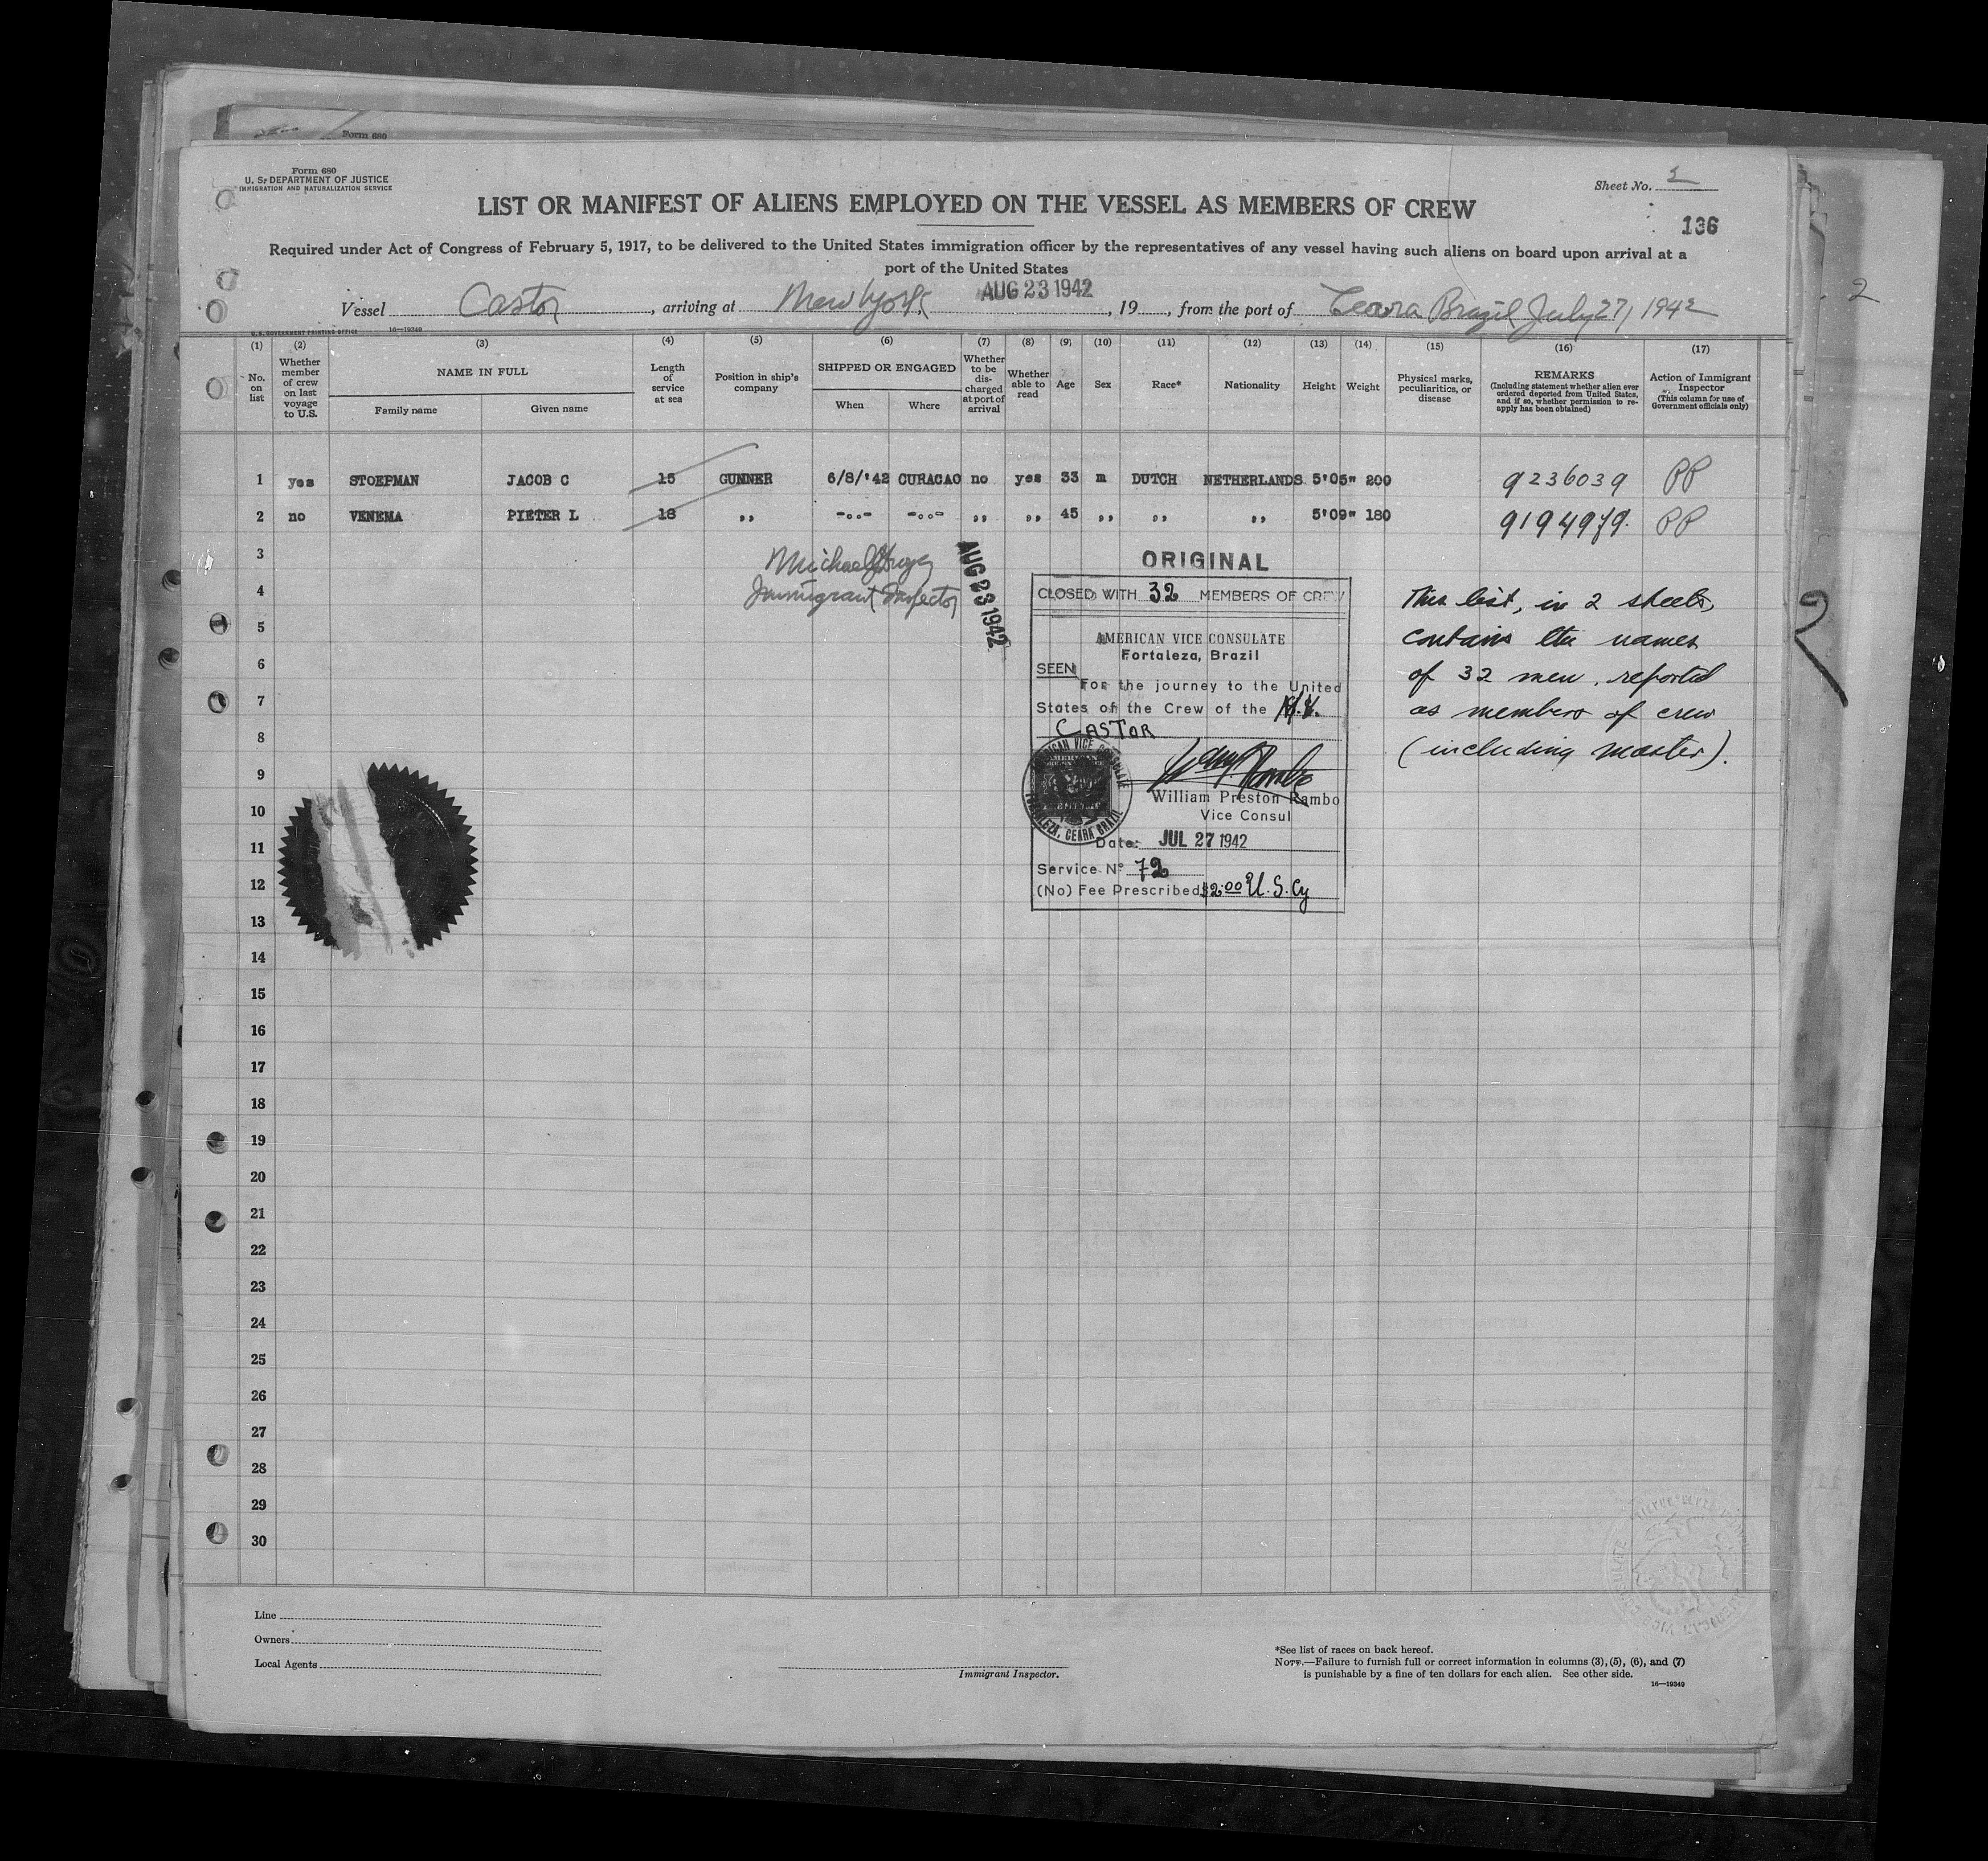 Form 680
Form 680
U. S. DEPARTMENT OF JUSTICE
IMMIGRATION AND NATURALIZATION SERVICE
Sheet No.
LIST OR MANIFEST OF ALIENS EMPLOYED ON THE VESSEL AS MEMBERS OF CREW
136
Required under Act of Congress of February 5, 1917, to be delivered to the United States immigration officer by the representatives of any vessel having such aliens on board upon arrival at a
port of the United States
Vessel Castor, arriving at New York, AUG 23 1942, 19, from the port of Ceara Brazil July 27, 1942
2
U. S. GOVERNMENT PRINTING OFFICE 16—19349
(1) (2) (3) (4) (5) (6) (7) (8) (9) (10) (11) (12) (13) (14) (15) (16) (17)
No. on list
Whether member of crew on last voyage to U.S.
NAME IN FULL
Family name
Given name
Length of service at sea
Position in ship's company
SHIPPED OR ENGAGED
When
Where
Whether to be discharged at port of arrival
Whether able to read
Age
Sex
Race*
Nationality
Height
Weight
Physical marks, peculiarities, or disease
REMARKS
(Including statement whether alien ever ordered deported from United States, and if so, whether permission to reapply has been obtained)
Action of Immigrant Inspector
(This column for use of Government officials only)
1 yes STOEPMAN JACOB C 15 GUNNER 6/8/'42 CURACAO no yes 33 m DUTCH NETHERLANDS 5'05" 200 9236039 PP
2 no VENEMA PIETER L 18 ,, -..- -..- ,, ,, 45 ,, ,, ,, 5'09" 180 9194979. PP
3
4
5
6
7
8
9
10
11
12
13
14
15
16
17
18
19
20
21
22
23
24
25
26
27
28
29
30
Michael
Immigrant Inspector
AUG 23 1942
ORIGINAL
CLOSED WITH 32 MEMBERS OF CREW
AMERICAN VICE CONSULATE
Fortaleza, Brazil
SEEN
For the journey to the United
States of the Crew of the M.V.
CASTOR
William Preston Rambo
Vice Consul
Date: JUL 27 1942
Service Nº 72
(No) Fee Prescribed $2.00 U.S.Cy
AMERICAN VICE CONSULATE
FORTALEZA, CEARA BRAZIL
This list, in 2 sheets,
contains the names
of 32 men, reported
as members of crew
(including master).
2
Line
Owners
Local Agents
Immigrant Inspector.
*See list of races on back hereof.
NOTE.—Failure to furnish full or correct information in columns (3), (5), (6), and (7)
is punishable by a fine of ten dollars for each alien. See other side.
16—19349